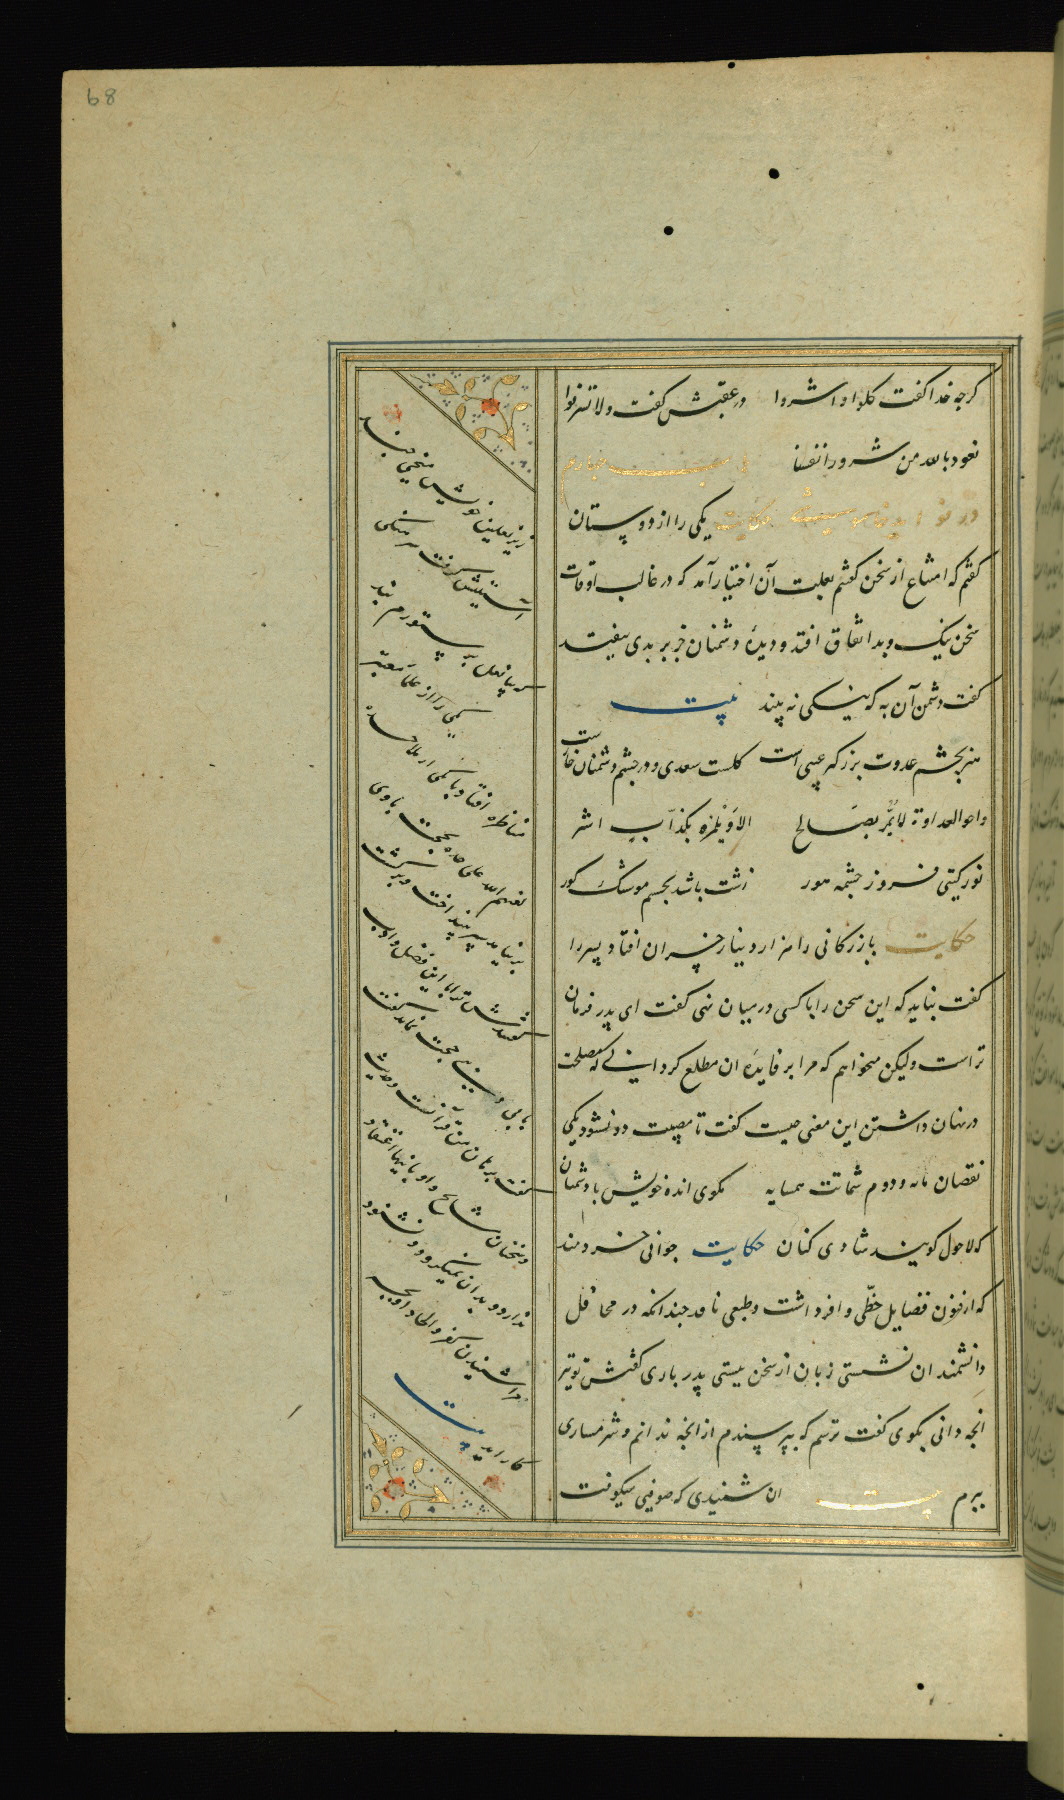 68
گرچه خدا گفت کلوا واشربوا در عقبش گفت ولا تسرفوا
نعوذ بالله من شرور انفسنا باب چهارم
در فواید خاموشی حکایت یکی را از دوستان
گفتم که امتناع از سخن گفتنم بعلت آن اختیار آمد که در غالب اوقات
سخن نیک و بد اتفاق افتد و دیدهٔ دشمنان جز بر بدی نیفتد
گفت دشمن آن به که نیکی نه بیند بیت
هنر بچشم عدوت بزرگتر عیبی است گلست سعدی و در چشم دشمنان خارست
واخو العداوة لا یمر بصالح الا ویلمزه بکذاب اشر
نور گیتی فروز چشمه هور زشت باشد بچشم موشک کور
حکایت بازرگانی را هزار دینار خسران افتاد پسر را
گفت نباید که این سخن را با کسی در میان نهی گفت ای پدر فرمان
تراست ولیکن میخواهم که مرا بر فایده ان مطلع گردانی که مصلحت
در نهان داشتن این معنی چیست گفت تا مصیبت دو نشود یکی
نقصان مایه و دوم شماتت همسایه مگوی انده خویش با دشمنان
که لاحول گویند شادی کنان حکایت جوانی خردمند
که از فنون فضایل حظی وافر داشت و طبعی نافد چندانکه در محافل
دانشمندان نشستی زبان از سخن ببستی پدر باری گفتش تو نیز
انچه دانی بگوی گفت ترسم که بپرسندم از انچه ندانم و شرمساری
برم بیت ان شنیدی که صوفیی میکوفت
زیر نعلین خویش میخی چند
آستینش گرفت سرهنگی
که بیا نعل بر ستورم بند
یکی را از علما معتبر
مناظره افتاد با یکی از ملاحده
لعنهم الله علی حده بحجت با وی
بر نیامد سپر بینداخت و برگشت
گفتندش ترا با این فضل و ادب
با بی دینی حجت نماند گفت
گفت برهان من قرآنست و حدیث
و سخنان مشایخ و او باینها اعتقاد
ندارد و بدان نمیگرود و نشنود
مرا شنیدن کفر و الحاد او بچه
کار اید بیت